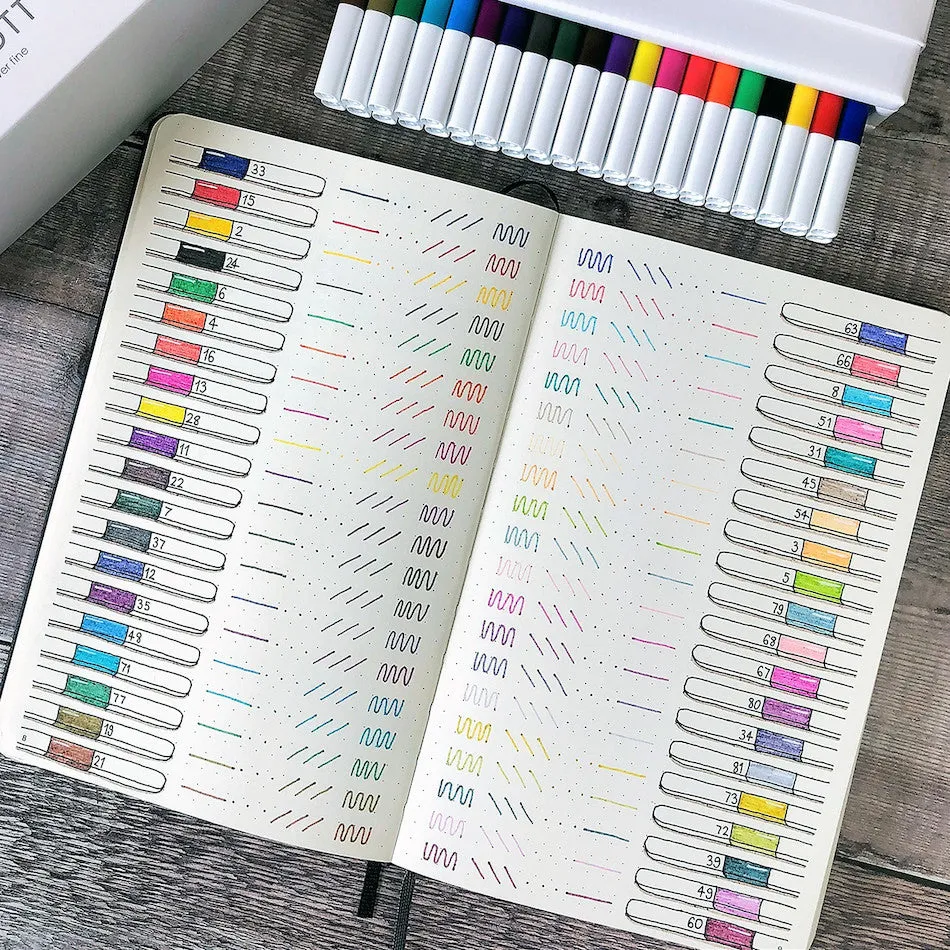 OTT
ver fine
33
15
2
24
6
4
16
13
28
11
22
7
37
12
35
48
71
77
19
21
8
63
66
8
51
31
45
54
3
5
79
68
67
80
34
81
73
72
39
49
60
9